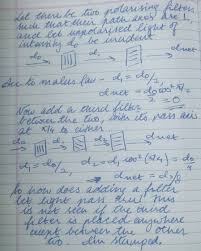 Let there be two polarising filters
such that their pass axes are ⊥,
and let unpolarised light of
intensity do be incident
do d₁ dnet
due to malus law - d₁ = do/2
dnet = do cos² π/2
= 0
Now add a third filter
between the two, with its pass axis
at π/4 to either
do d₁ d₂ dnet
d₁ = do/2, d₂ = d₁ cos²(π/4) = do/4
dnet = do/8
So how does adding a filter
let light pass thru! This
is not seen if the third
filter is placed anywhere
except between the other
two. I'm stumped.